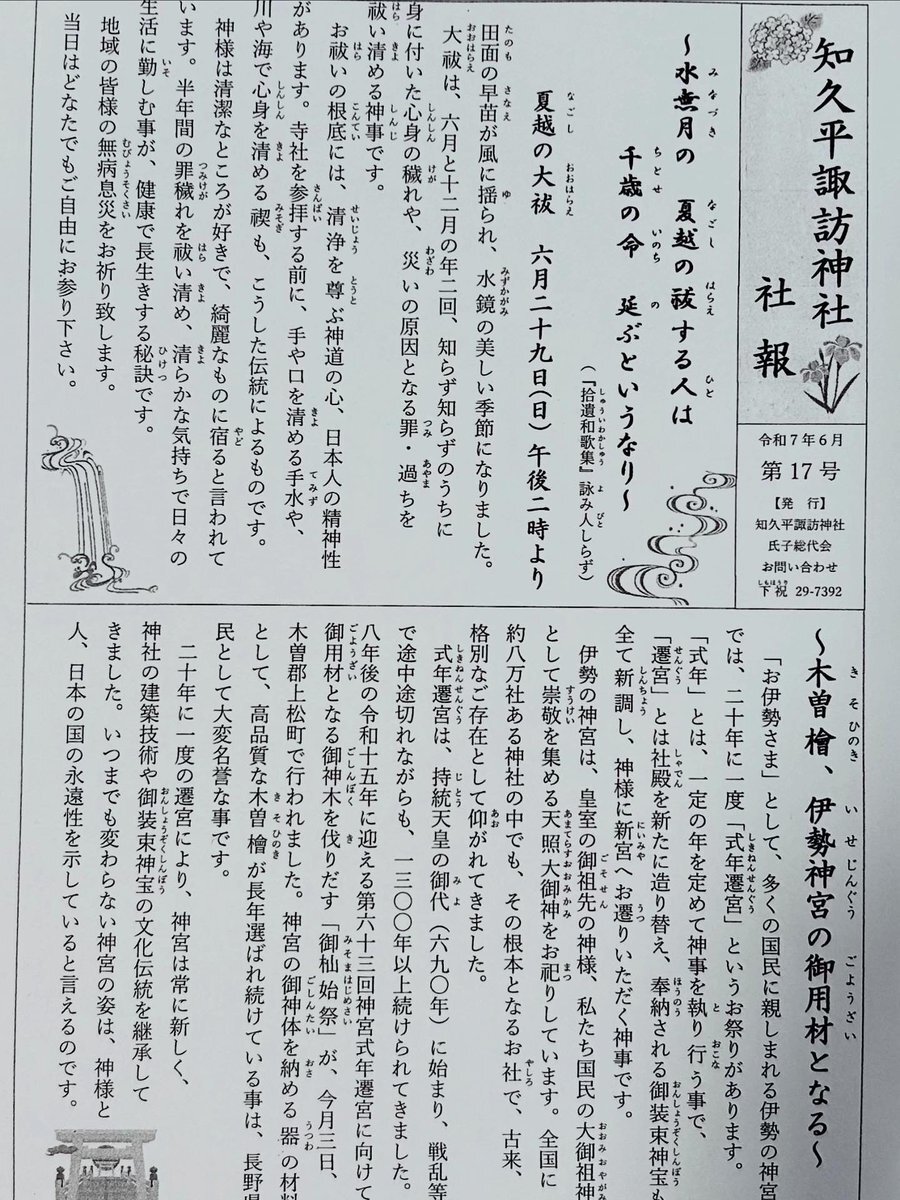 知久平諏訪神社
社報
令和7年6月
第17号
【発 行】
知久平諏訪神社
氏子総代会
お問い合わせ
下祝 29-7392
～水無月の 夏越の祓する人は
千歳の命 延ぶというなり～
（『拾遺和歌集』詠み人しらず）
夏越の大祓 六月二十九日（日）午後二時より
田面の早苗が風に揺られ、水鏡の美しい季節になりました。
大祓は、六月と十二月の年二回、知らず知らずのうちに
身に付いた心身の穢れや、災いの原因となる罪・過ちを
祓い清める神事です。
お祓いの根底には、清浄を尊ぶ神道の心、日本人の精神性
があります。寺社を参拝する前に、手や口を清める手水や、
川や海で心身を清める禊も、こうした伝統によるものです。
神様は清潔なところが好きで、綺麗なものに宿ると言われて
います。半年間の罪穢れを祓い清め、清らかな気持ちで日々の
生活に勤しむ事が、健康で長生きする秘訣です。
地域の皆様の無病息災をお祈り致します。
当日はどなたでもご自由にお参り下さい。
～木曽檜、伊勢神宮の御用材となる～
「お伊勢さま」として、多くの国民に親しまれる伊勢の神宮
では、二十年に一度「式年遷宮」というお祭りがあります。
「式年」とは、一定の年を定めて神事を執り行う事で、
「遷宮」とは社殿を新たに造り替え、奉納される御装束神宝も
全て新調し、神様に新宮へお遷りいただく神事です。
伊勢の神宮は、皇室の御祖先の神様、私たち国民の大御祖神
として崇敬を集める天照大御神をお祀りしています。全国に
約八万社ある神社の中でも、その根本となるお社で、古来、
格別なご存在として仰がれてきました。
式年遷宮は、持統天皇の御代（六九〇年）に始まり、戦乱等
で途中途切れながらも、一三〇〇年以上続けられてきました。
八年後の令和十五年に迎える第六十三回神宮式年遷宮に向けて
御用材となる御神木を伐りだす「御杣始祭」が、今月三日、
木曽郡上松町で行われました。神宮の御神体を納める器の材料
として、高品質な木曽檜が長年選ばれ続けている事は、長野県
民として大変名誉な事です。
二十年に一度の遷宮により、神宮は常に新しく、
神社の建築技術や御装束神宝の文化伝統を継承して
きました。いつまでも変わらない神宮の姿は、神様と
人、日本の国の永遠性を示していると言えるのです。